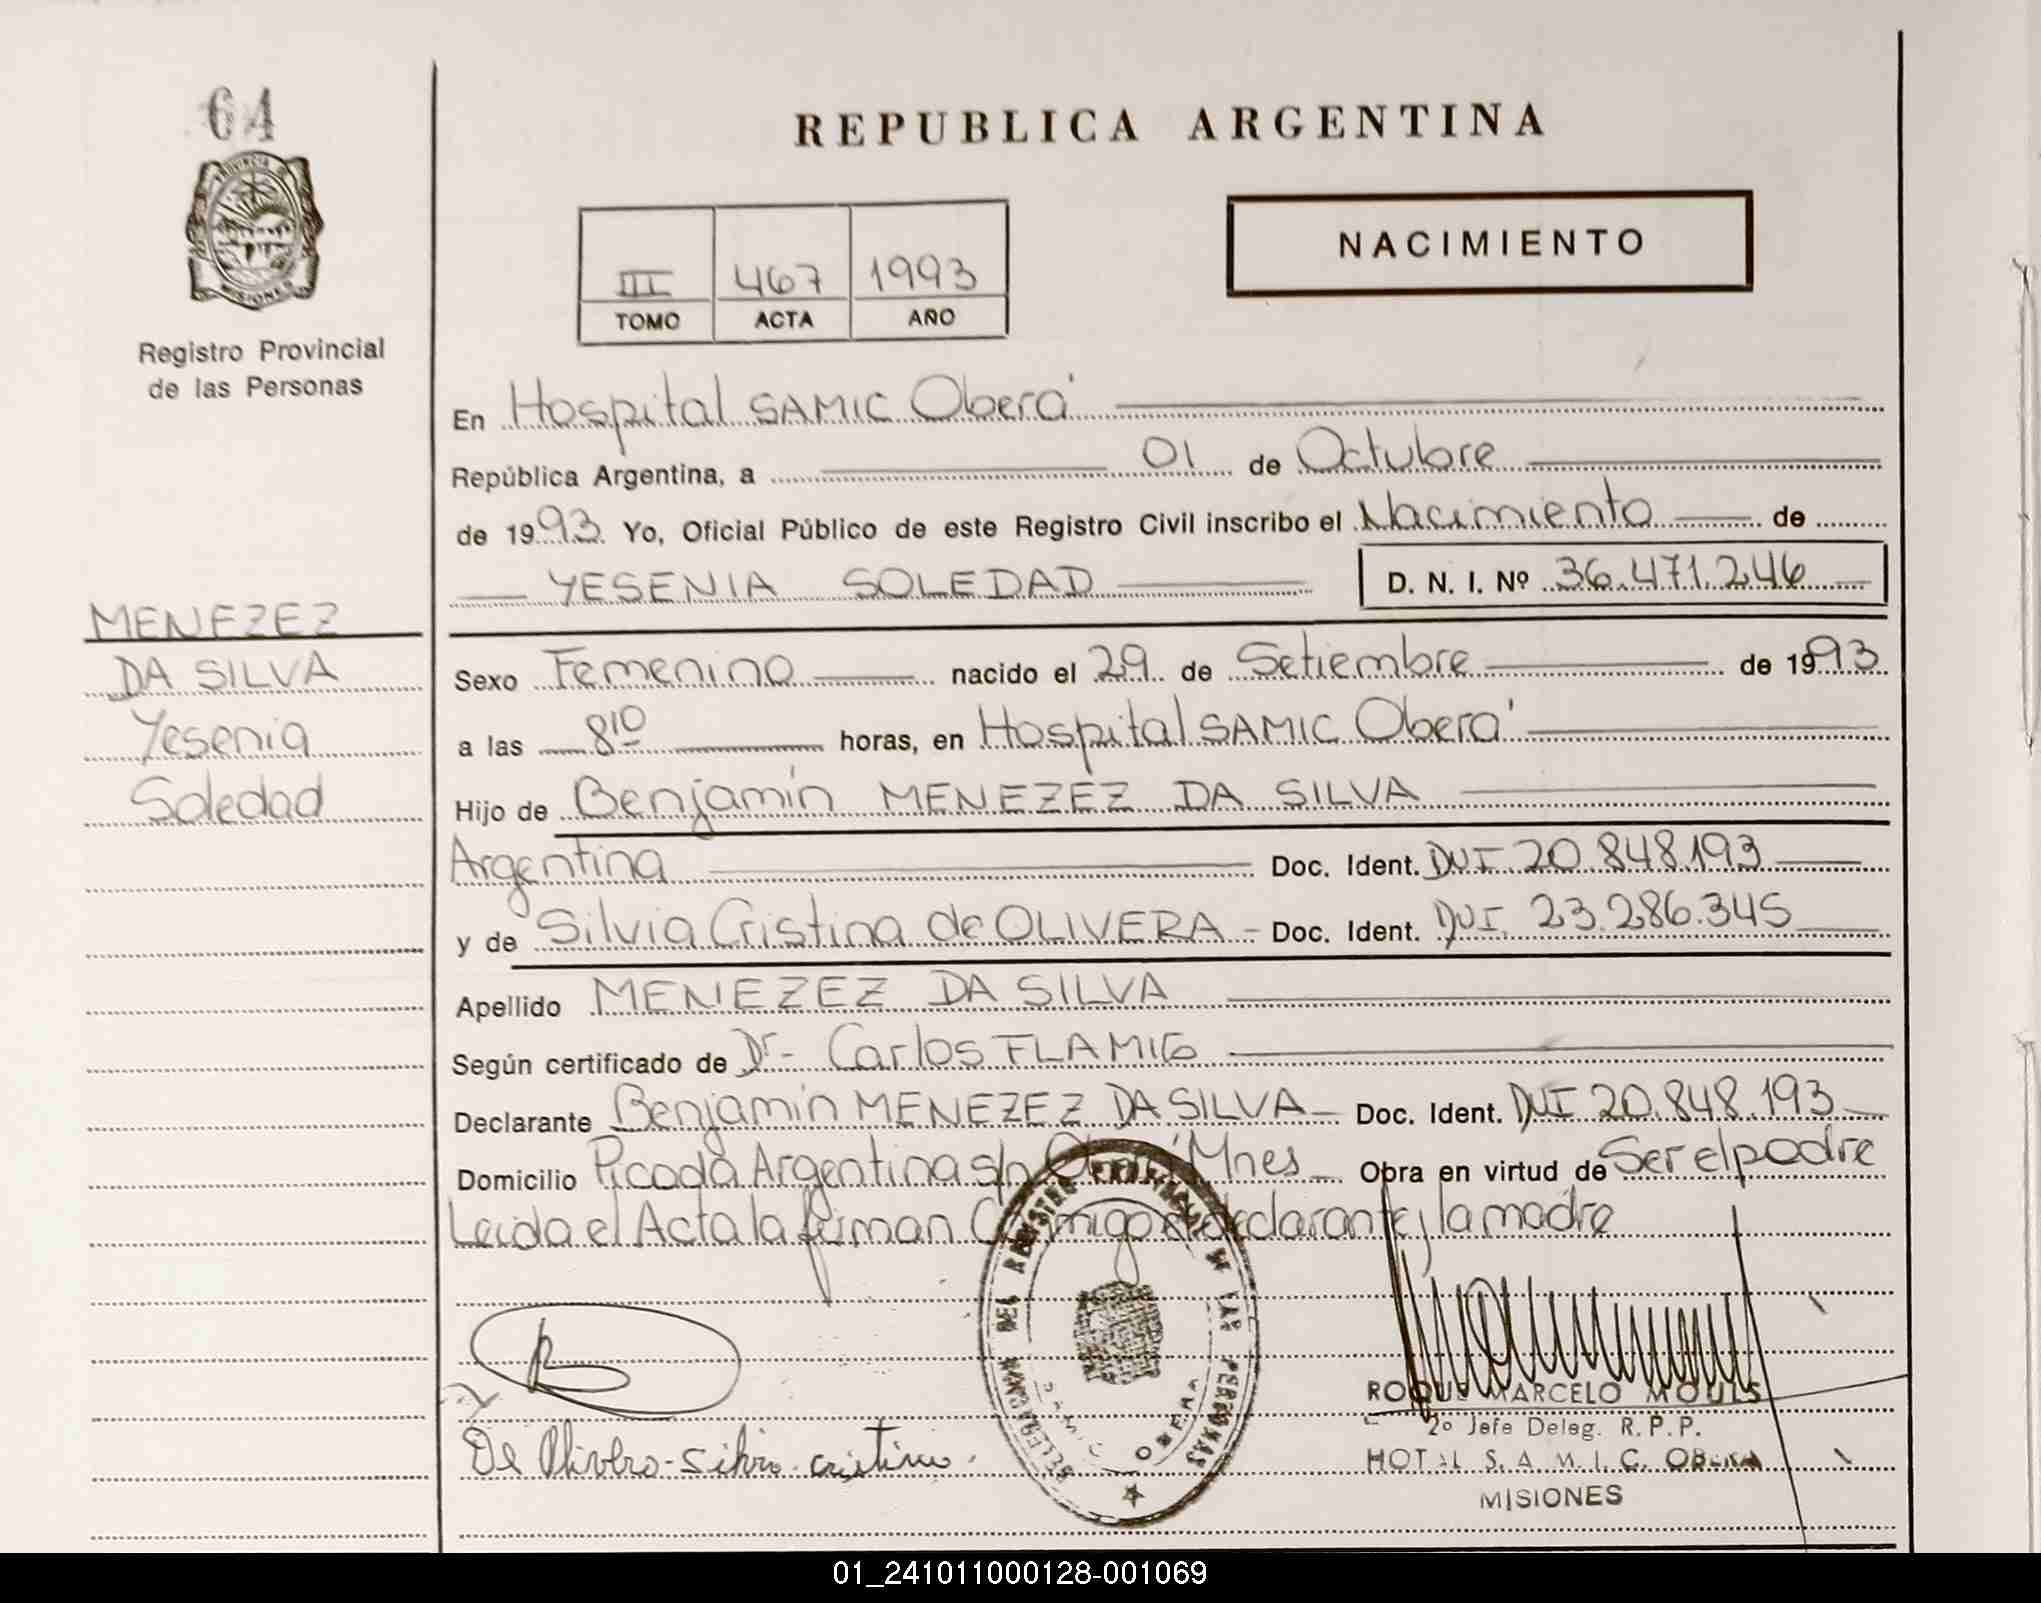 64
PROVINCIA
MISIONES
Registro Provincial
de las Personas
REPUBLICA ARGENTINA
III 467 1993
TOMO ACTA AÑO
NACIMIENTO
En Hospital SAMIC Oberá
República Argentina, a 01 de Octubre
de 1993 Yo, Oficial Público de este Registro Civil inscribo el Nacimiento de
YESENIA SOLEDAD D. N. I. Nº 36.471.246
MENEZEZ
DA SILVA
Yesenia
Soledad
Sexo Femenino nacido el 29 de Setiembre de 1993
a las 8¹⁰ horas, en Hospital SAMIC Oberá
Hijo de Benjamín MENEZEZ DA SILVA
Argentina Doc. Ident. DNI 20.848.193
y de Silvia Cristina de OLIVERA - Doc. Ident. DNI. 23.286.345
Apellido MENEZEZ DA SILVA
Según certificado de Dr- Carlos FLAMIG
Declarante Benjamín MENEZEZ DA SILVA Doc. Ident. DNI 20.848.193
Domicilio Picada Argentina s/n Mnes Obra en virtud de Ser el padre
Leida el Acta la firman declarante y la madre
DELEGACION DEL REGISTRO PROVINCIAL DE LAS PERSONAS
OBERA
De Olivera-silvia cristina.
ROQUE MARCELO MOULS
2º Jefe Deleg. R.P.P.
HOTAL S.A.M.I.C. OBERA
MISIONES
01_241011000128-001069